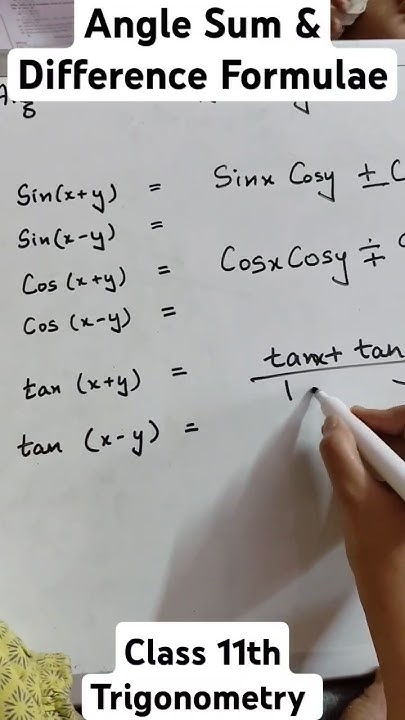 Angle Sum &
Difference Formulae
Sin(x+y) = Sinx Cosy ± C
Sin(x-y) =
Cos (x+y) = CosxCosy ∓
Cos (x-y) =
tan (x+y) = tanx+ tan
1
tan (x-y) =
Class 11th
Trigonometry